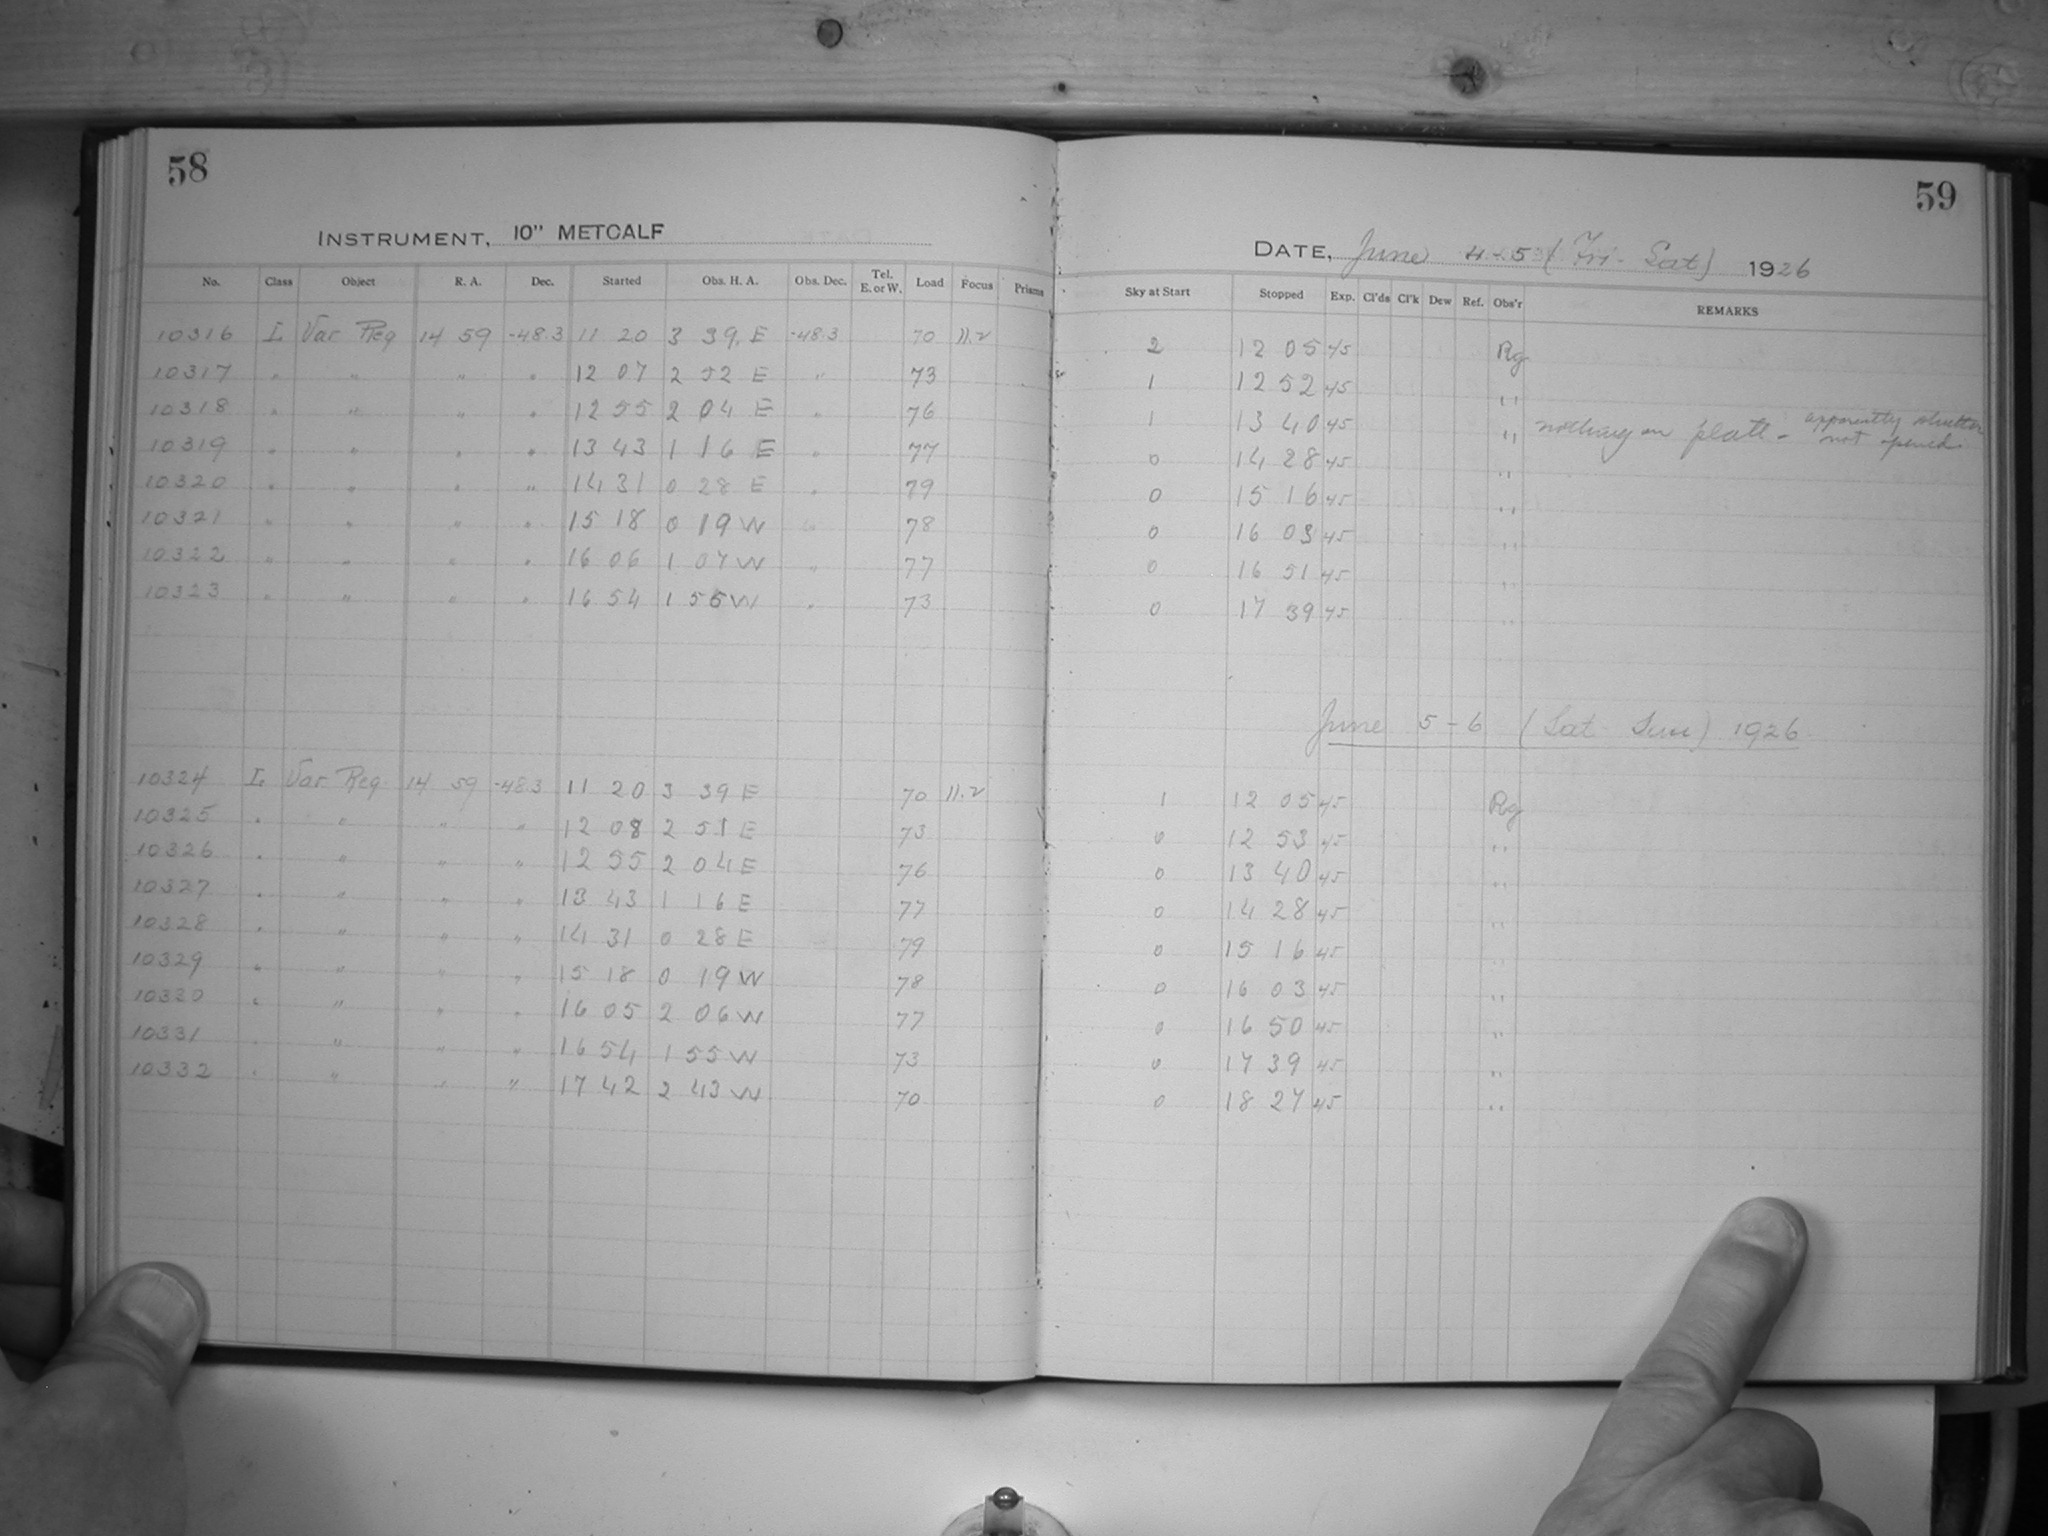 58
INSTRUMENT, 10" METCALF
No. Class Object R. A. Dec. Started Obs. H. A. Obs. Dec. Tel. E. or W. Load Focus Prisms
10316 I Var Reg 14 59 -48.3 11 20 3 39 E -48.3 70 11.2
10317 " " " " 12 07 2 52 E " 73
10318 " " " " 12 55 2 04 E " 76
10319 " " " " 13 43 1 16 E " 77
10320 " " " " 14 31 0 28 E " 79
10321 " " " " 15 18 0 19 W " 78
10322 " " " " 16 06 1 07 W " 77
10323 " " " " 16 54 1 55 W " 73
10324 I Var Reg 14 59 -48.3 11 20 3 39 E 70 11.2
10325 " " " " 12 08 2 51 E 73
10326 " " " " 12 55 2 04 E 76
10327 " " " " 13 43 1 16 E 77
10328 " " " " 14 31 0 28 E 79
10329 " " " " 15 18 0 19 W 78
10330 " " " " 16 05 2 06 W 77
10331 " " " " 16 54 1 55 W 73
10332 " " " " 17 42 2 43 W 70
59
DATE, June 4-5 (Fri-Sat) 1926
Sky at Start Stopped Exp. Cl'ds Cl'k Dew Ref. Obs'r REMARKS
2 12 05 45 Rg
1 12 52 45 "
1 13 40 45 " nothing on plate - apparently shutter not opened.
0 14 28 45 "
0 15 16 45 "
0 16 03 45 "
0 16 51 45 "
0 17 39 45 "
June 5-6 (Sat Sun) 1926
1 12 05 45 Rg
0 12 53 45 "
0 13 40 45 "
0 14 28 45 "
0 15 16 45 "
0 16 03 45 "
0 16 50 45 "
0 17 39 45 "
0 18 27 45 "